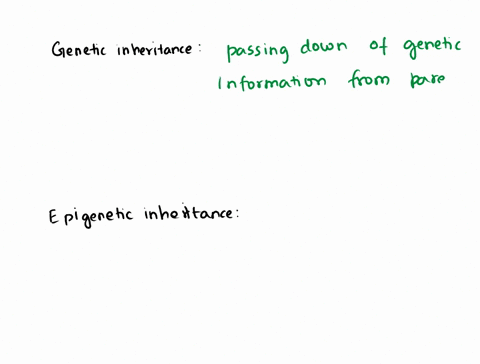 Genetic inheritance: passing down of genetic
Information from pare
Epigenetic inheritance: